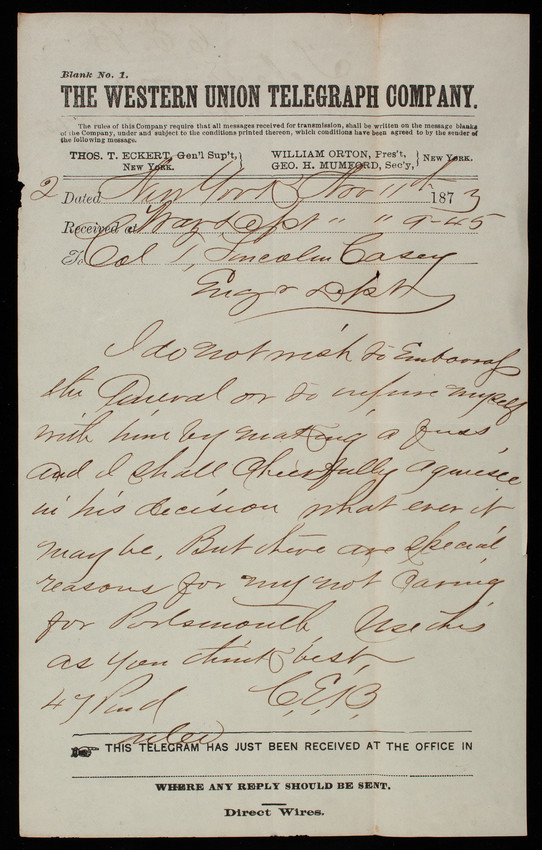 Blank No. 1.
THE WESTERN UNION TELEGRAPH COMPANY.
The rules of this Company require that all messages received for transmission, shall be written on the message blanks
of the Company, under and subject to the conditions printed thereon, which conditions have been agreed to by the sender of
the following message.
THOS. T. ECKERT, Gen'l Sup't, NEW YORK. WILLIAM ORTON, Pres't, GEO. H. MUMFORD, Sec'y, NEW YORK.
2 Dated New York Nov 11th 1873
Received at War Dept " " 9-45
To Col T, Lincoln Casey
Engr Dept
I do not wish to Embarrass
the General or to injure myself
with him by making a fuss
and I shall Cheerfully acquiesce
in his decision what ever it
may be, But there are special
reasons for my not Caring
for Portsmouth Use this
as you think best,
47 Paid C,E,B,
THIS TELEGRAM HAS JUST BEEN RECEIVED AT THE OFFICE IN
WHERE ANY REPLY SHOULD BE SENT.
Direct Wires.